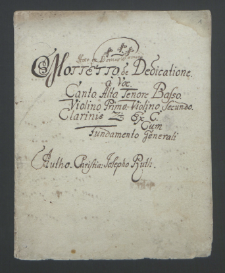 Mottetto de Dedicatione.
a 4 Voc.
Canto Alto Tenore Basso.
Violino Primo Violino Secundo.
Clarinis 2 Ex C.
Cum
Fundamento Generali
Autho. Christia: Josepho Ruth.